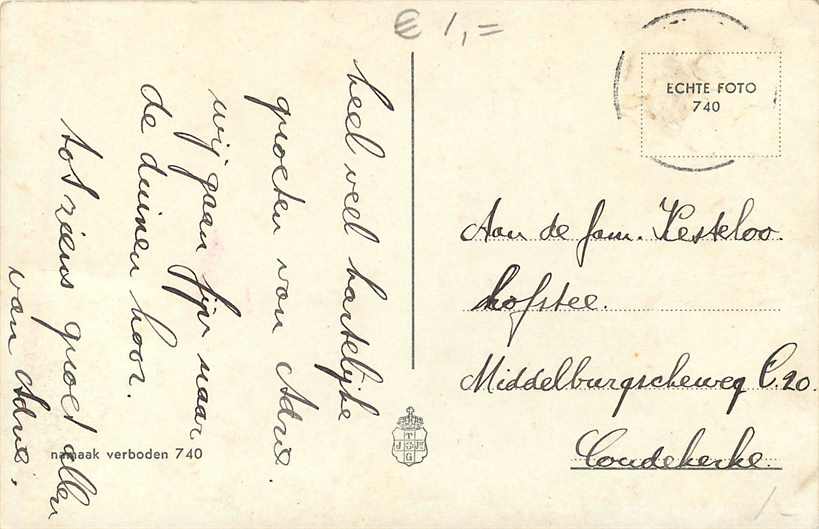 € 1,=
heel veel hartelijke
groeten van Adrie.
wij gaan fijn naar
de duinen hoor.
tot ziens groet allen
van Adrie.
ECHTE FOTO
740
Aan de fam. Kesteloo.
hofstee.
Middelburgscheweg C.20.
Coudekerke.
namaak verboden 740
T
J
G
1-